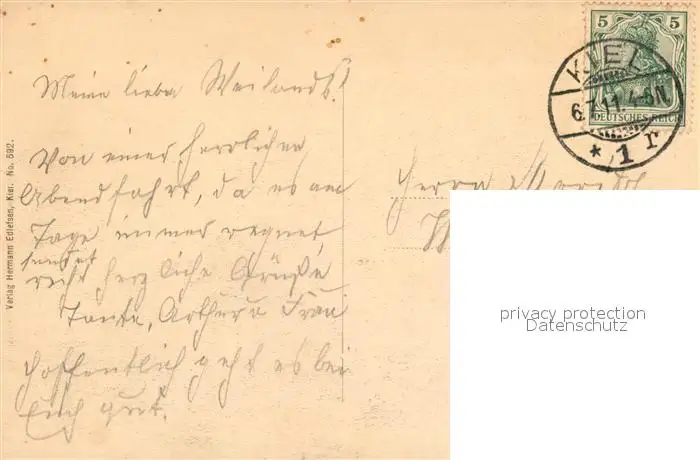 5 5
DEUTSCHES REICH
KIEL
6.7.11. 4-5N
* 1 r
Meine lieben Weilands!
Von einer herrlichen
Abendfahrt, da es am
Tage immer regnet,
sendet
recht herzliche Grüße
Tante, Arthur u Frau
Hoffentlich geht es bei
Euch gut.
Herrn
Verlag Hermann Edlefsen, Kiel. No. 592.
privacy protection
Datenschutz